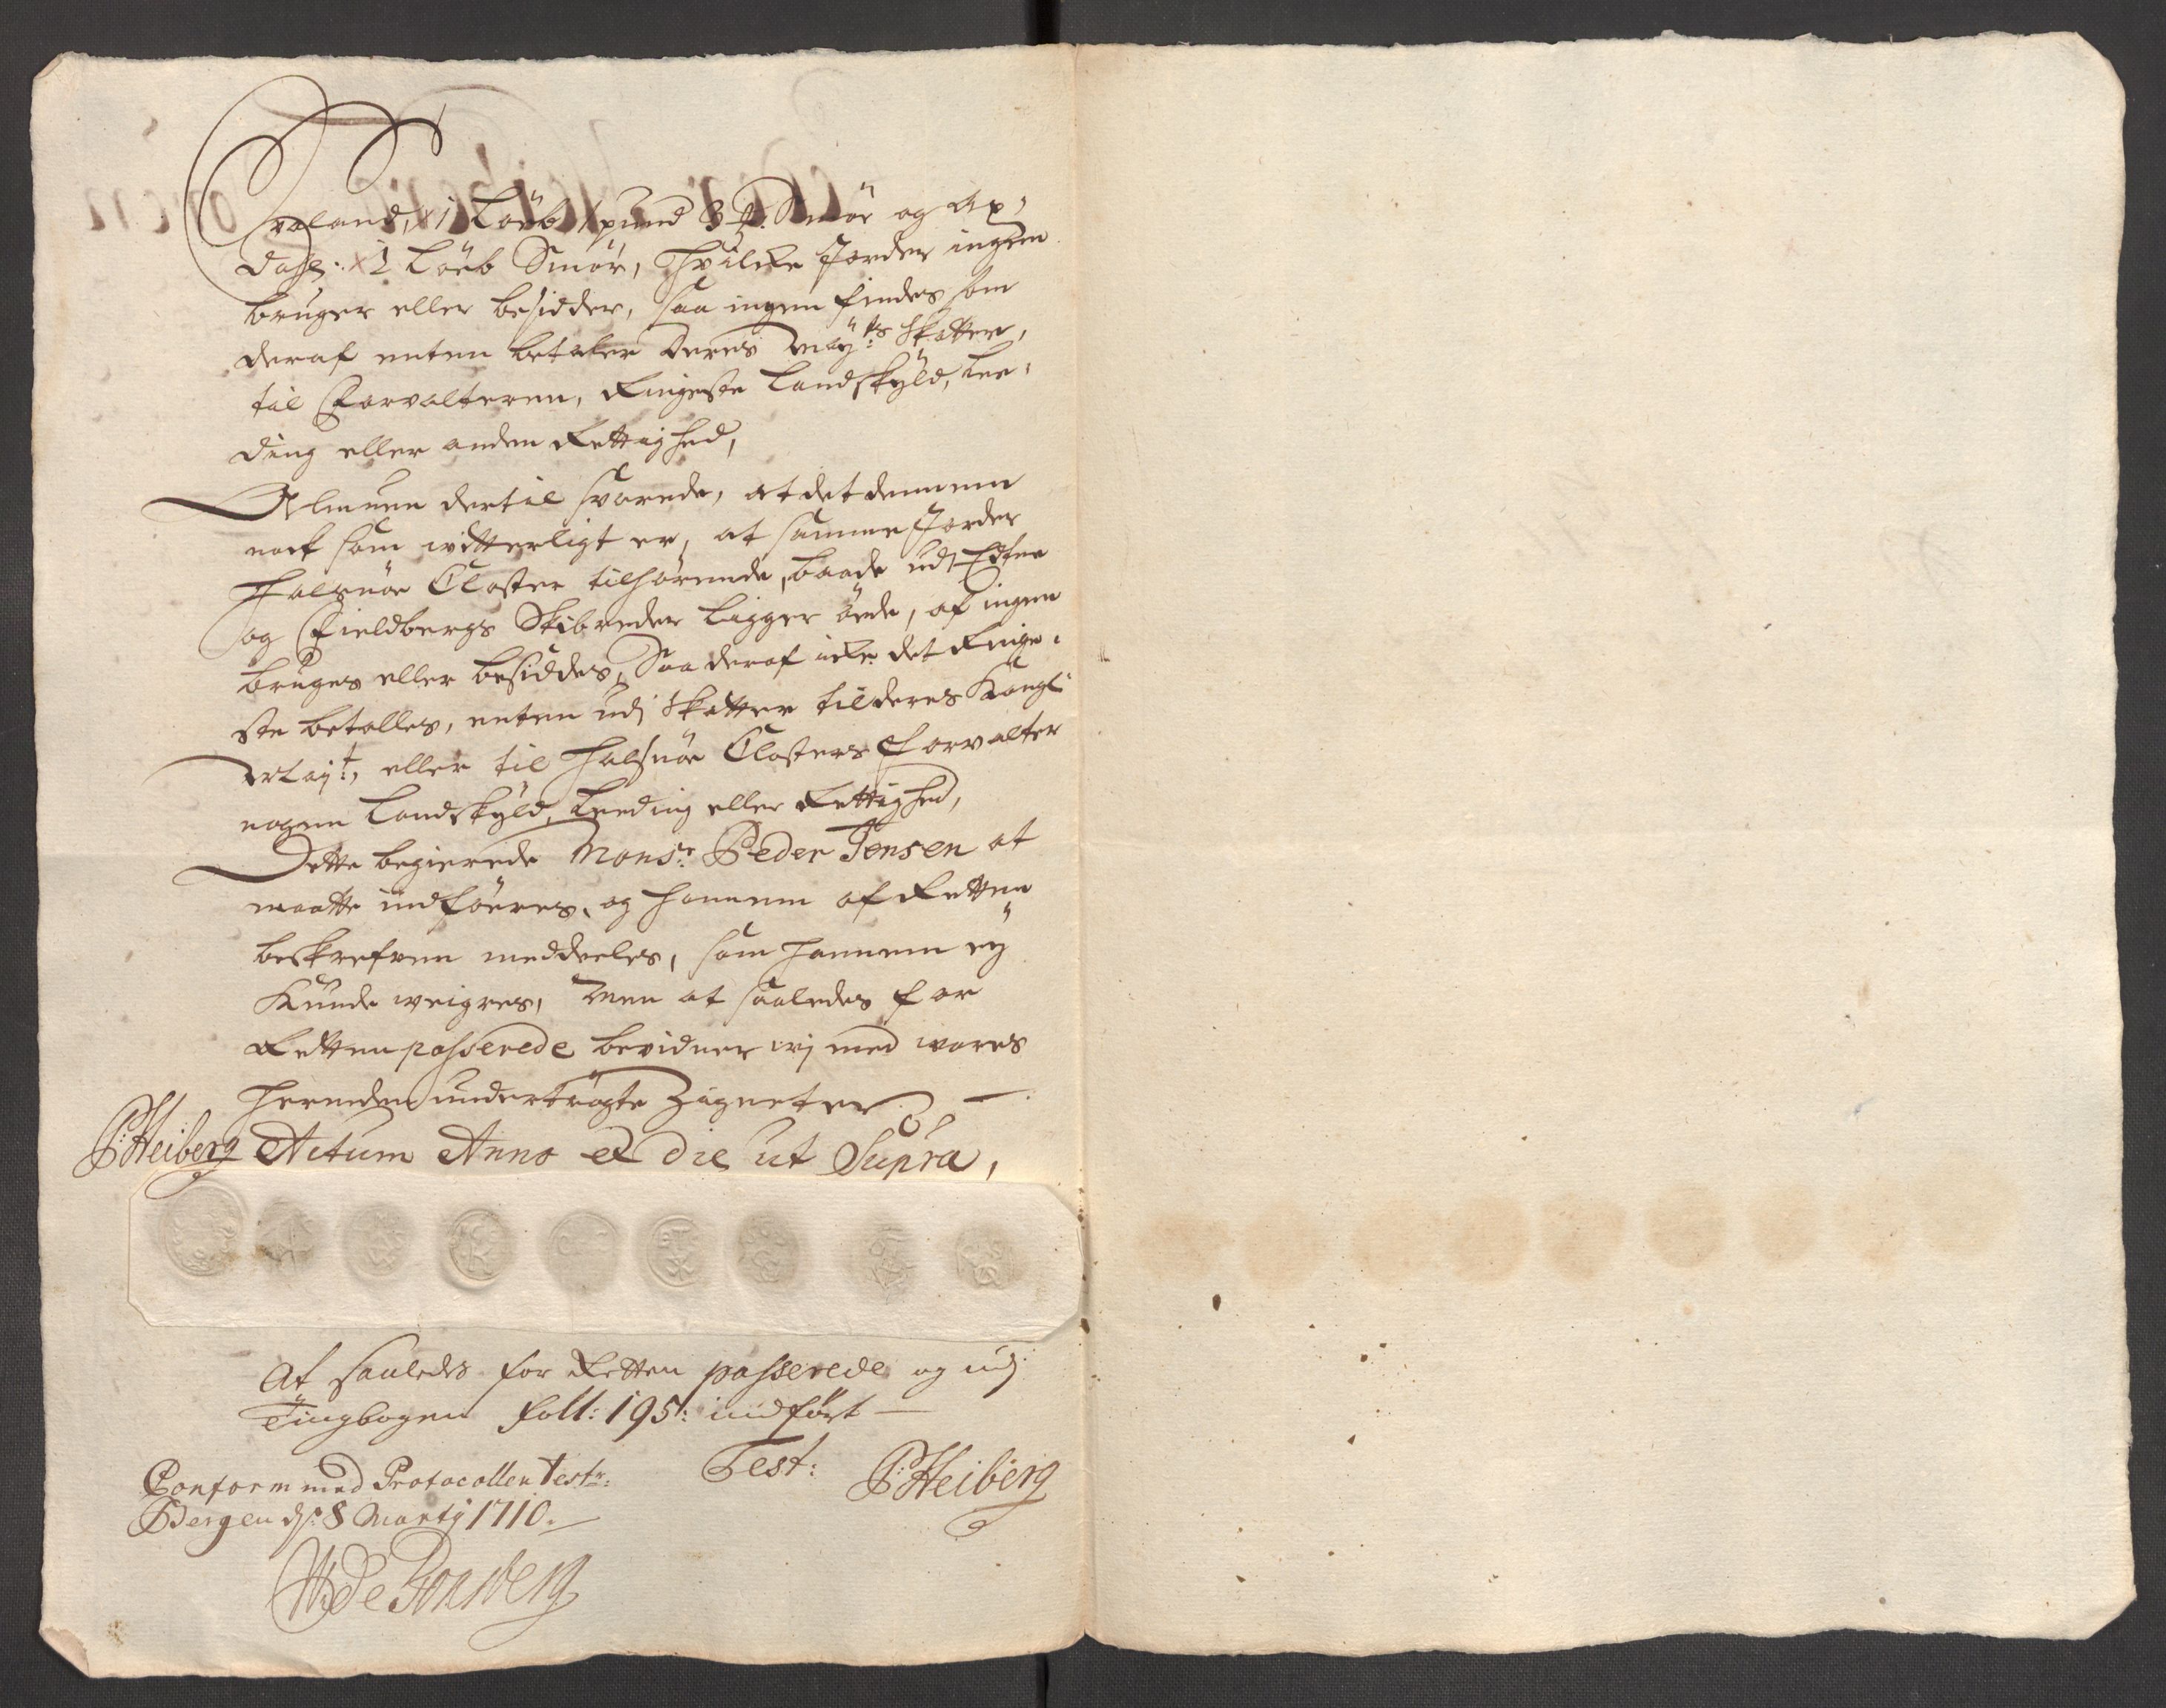 Løeb 1 pund 3 ℔: Smør og Ax,
dahl: x 1 Løeb Smør, hvilke Jorder ingen
bruger eller besidder, saa ingen findes som
deraf enten betaler deres Maÿ:ts Skatter,
til Forvalteren, ringeste Landskÿld, Lee,
ding eller anden Rettighed,
Almuen dertil svarede, at det dennem
nock som witterligt er, at samme Jorder
Halsnøe Closter tilhørende, baade udi Etne
og Fieldbergs Skibreder ligger øede, af ingen
bruges eller besiddes, Saa deraf icke det ringe,
ste betalles, enten udj Skatter til deres Kongl:
Maÿ:t, eller til Halsnøe Closters Forvalter
nogen Landskÿld, Leeding eller Rettighed,
Dette begierede Mons:r Peder Jensen at
maatte indføeres, og hannem af Retten
beskrefven meddeeles, som hannem eÿ
Kunde weigres, Men at saaledes for
Retten passerede bevidner wj med wores
herneden undertrögte Zigneter. —
P:Heiberg Actum Anno et die ut Supra,
At saaledes for Retten passerede og udj
Tingbogen foll: 195: indført —
Test: P:Heiberg
Conform med Protocollen Test:
Bergen ds: 8 Martÿ 1710. —